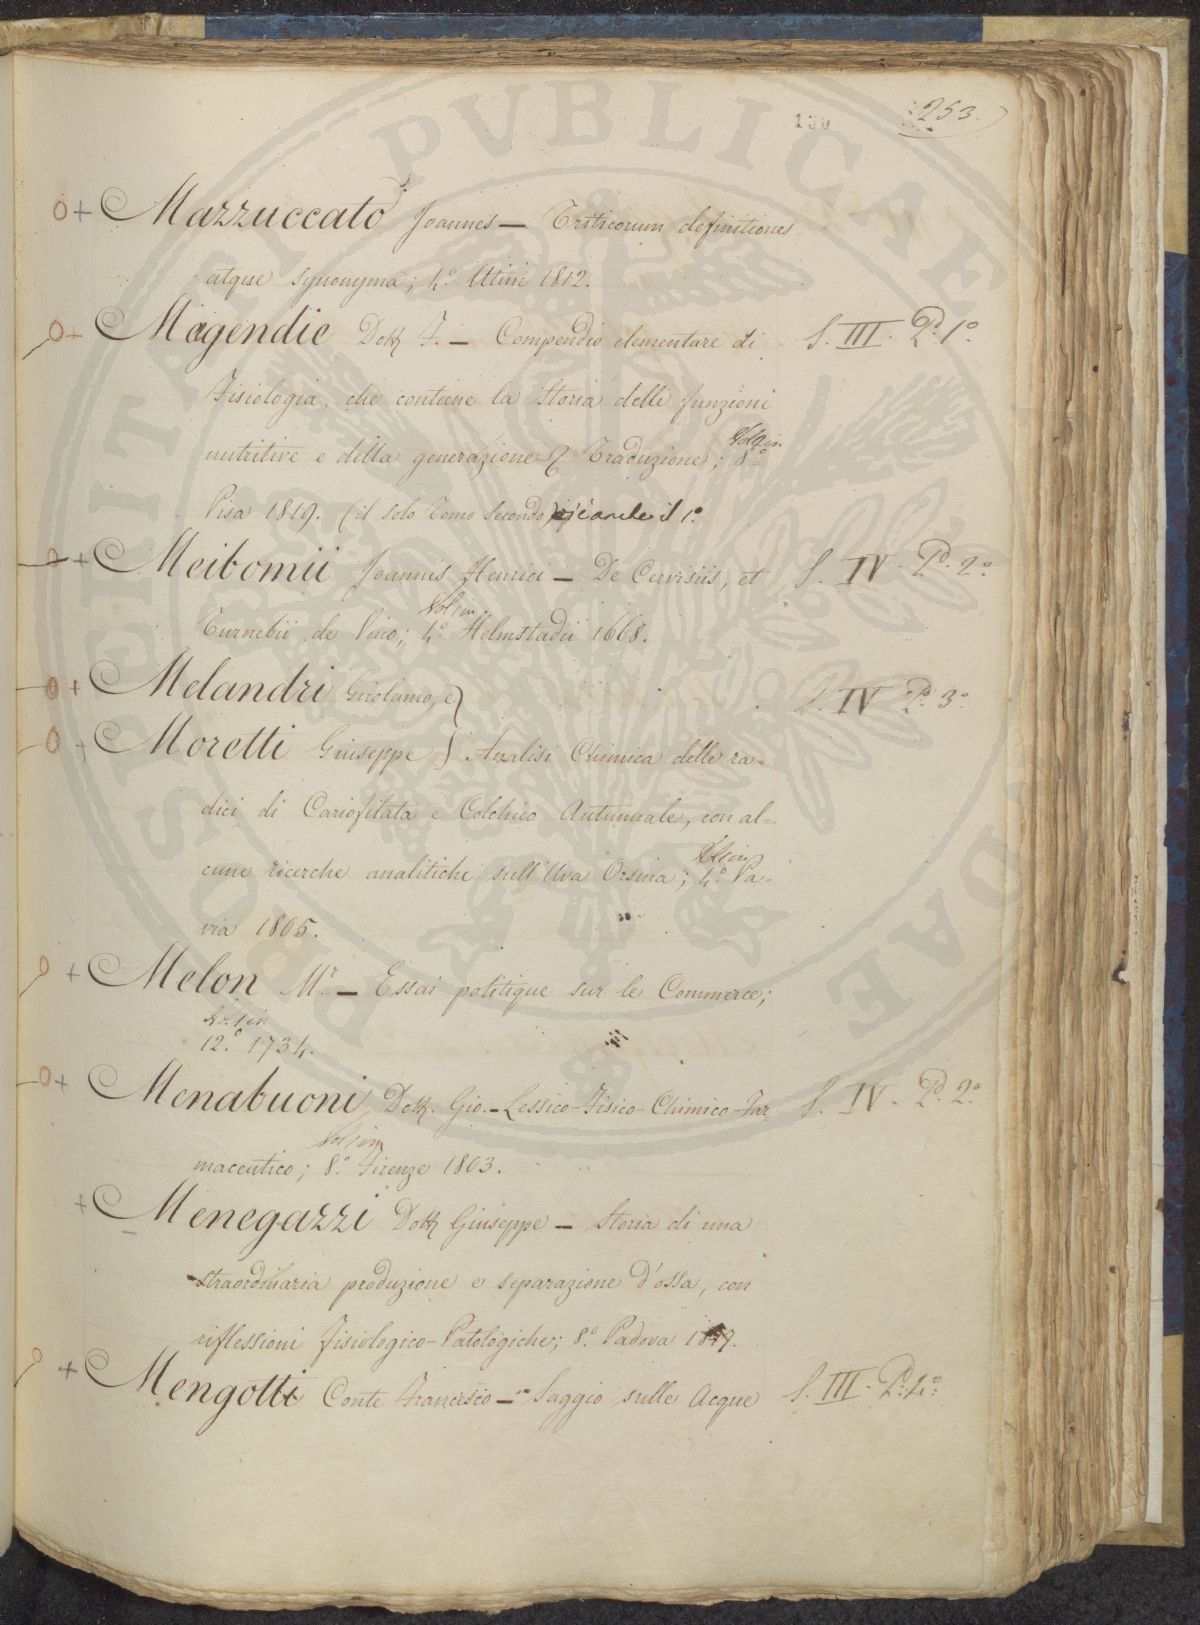 PUBLICAE
130
253.
Mazzuccato Joannes — Triticorum definitiones
atque synonyma; 4.° Utini 1812.
Magendie Dott. F. — Compendio elementare di S. III. Pd. 1.°
Fisiologia, che contiene la storia delle funzioni
nutritive e della generazione Traduzione; Vol. in 8.°
Pisa 1819. (il solo Tomo Secondo) c'è anche il 1.°
Meibomii Joannis Henrici — De Cervisiis, et S. IV. Pd. 2.°
Turnebii de Vino; Vol. in 4.° Helmstadii 1668.
Melandri Girolamo, e} S. IV Pd. 3.°
Moretti Giuseppe } Analisi Chimica delle ra-
dici di Cariofilata e Colchico Autunnale, con al-
cune ricerche analitiche sull'Uva Orsina; Vol. in 4.° Pa-
via 1805.
Melon Mr. — Essai politique sur le Commerce;
Vol. in 12.° 1734.
Menabuoni Dott. Gio. — Lessico-Fisico-Chimico-Far S. IV. Pd. 2.°
maceutico; Vol. in 8.° Firenze 1803.
Menegazzi Dott. Giuseppe — Storia di una
straordinaria produzione e separazione d'ossa, con
riflessioni Fisiologico-Patologiche; 8.° Padova
Mengotti Conte Francesco — Saggio sulle Acque S. III. Pd. 4.°